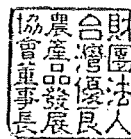 財團法人
台灣優良
農產品發展
協會董事長